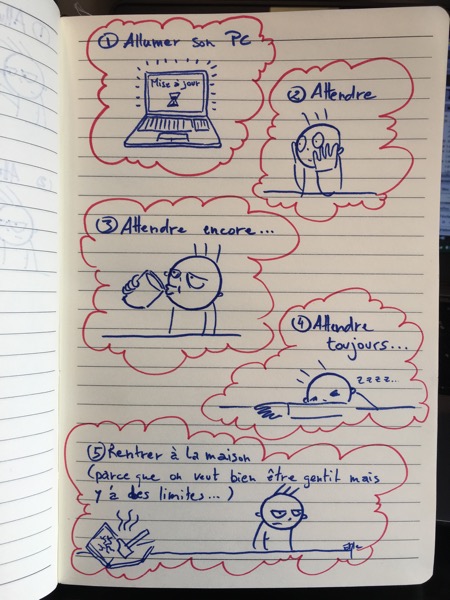 ① Allumer son PC
Mise à jour
② Attendre
③ Attendre encore...
④ Attendre
toujours...
zzzz..
⑤ Rentrer à la maison
(parce que on veut bien être gentil mais
y'a des limites...)